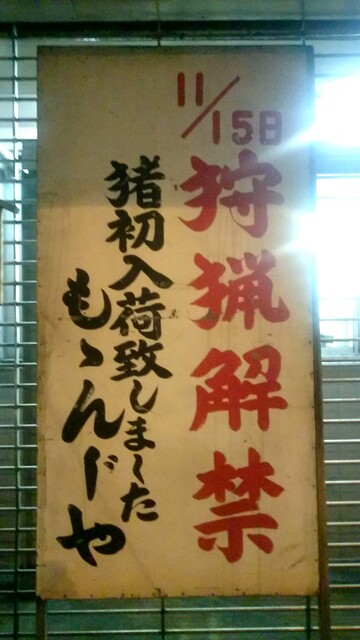 11/15日
狩猟解禁
猪初入荷致しました
もゝんじや